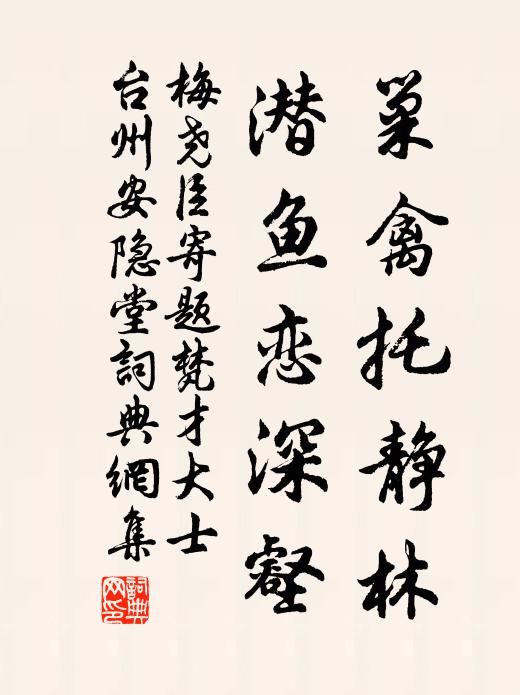 巢禽托静林
潜鱼恋深壑
梅尧臣寄题梵才大士
台州安隐堂詞典網集
詞典网印